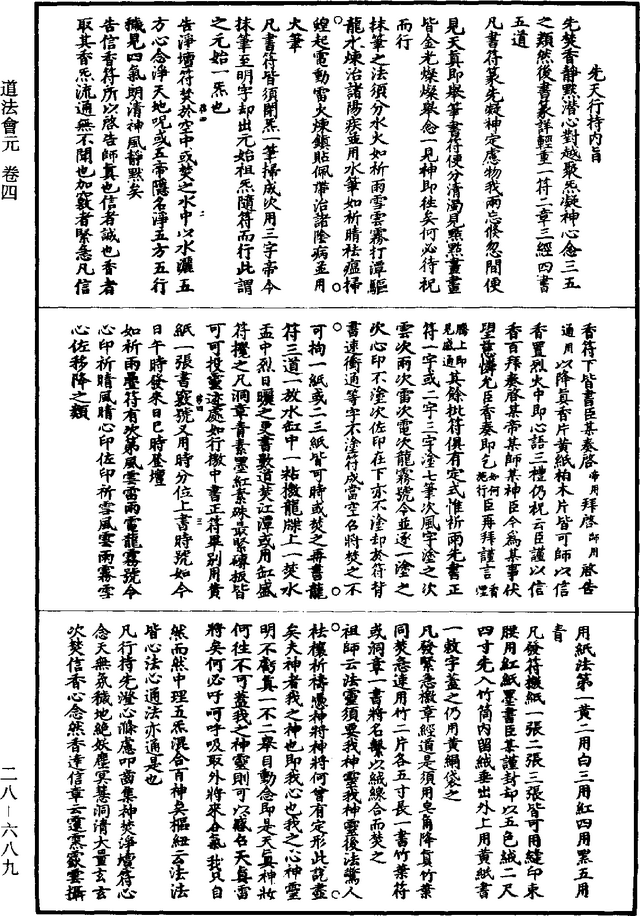 先天行持內旨
先焚香靜默潛心對越聚炁凝神心念三五
之類然後書篆詳輕重一符二章三經四書
五道
凡書符篆先凝神定慮物我兩忘倐忽間便
見天真即舉筆書符便分清濁見點點畫畫
皆金光燦燦舉念一見神即往矣何必待祝
而行
抹筆之法須分水火如祈雨雪雲霧打潭驅
龍水煉治諸陽疾並用水筆如祈晴祛瘟掃
蝗起電動雷火煉鎮貼佩帶治諸陰病並用
火筆
凡書符皆須閉炁一筆掃成次用三字帝令
抹筆至明字却出元始祖炁隨符而行此謂
之元始一炁也
告淨壇符焚於空中或焚之水中以水灑五
方心念淨天地呪或五帝隱名淨五方五行
穢見四氣朗清神風靜默矣
告信香符所以啓告師真也信者誠也香者
取其香炁流通無不聞也加竅者緊急凡信
香符下皆書臣某奏啓帝用拜啓師用啓告
通用以降真香片黃紙柏木片皆可師以信
香置烈火中即心語三禮仍祝云臣謹以信
香百拜奏啓某帝某師某神臣今爲某事伏
望慈憐允臣香奏即乞如何施行臣再拜謹言香煙
騰上即見感通其餘批符俱有定式惟祈雨先書正
符一字或二字三字塗七筆次風字塗之次
雲次雨次雷次電次龍霧號令並逐一塗之
次心印不塗次佐印在下亦不塗却於符背
書速衝通等字不塗符成當空召將焚之不
可拘一紙或二三紙皆可時或焚之再書龍
符三道一放水缸中一粘檄龍牒上一焚水
盂中烈日曬之更書數道焚江潭或用缸盛
符攪之凡洞章青素墨紅素硃最緊磚板皆
可可投靈迹處如行檄中書正符畢別用黃
紙一張書竅號又用時分位上書時號如今
日午時發來日巳時登壇
如祈雨疊符有次第風雲雷雨電龍霧號令
心印祈晴風晴心印佐印祈雪風雲雨霧雪
心佐移降之類
用紙法第一黃二用白三用紅四用黑五用
青
凡發符檄紙一張二張三張皆可用縫印束
腰用紅紙墨書臣某謹封却以五色絨二尺
四寸先入竹筒內留絨垂出外上用黃紙書
一敕字蓋之仍用黃絹袋之
凡發緊急檄章經道是須用皂角降真竹葉
同焚急速用竹二片各五寸長一書竹葉符
或洞章一書將名縶以絨線合而焚之
祖師云法靈須要我神靈我神靈後法驚人
祛禳祈禱憑神將神將何曾有定形此說盡
矣夫神者我之神也即我心也我之心神靈
明不虧真一不二舉目動念即是天真神妙
何往不可蓋我之神靈則可以感召天真雷
將矣何必呼呵呼吸取外將來合氣我只自
然而然中理五炁混合百神矣樞紐云法法
皆心法心通法亦通是也
凡行持先澄心滌慮叩齒集神焚淨壇符心
念天無氛穢地絕妖塵冥慧洞清大量玄玄
次焚信香心念然香達信章云篷雲竅雲攝
道法會元 卷四
二八－六八九